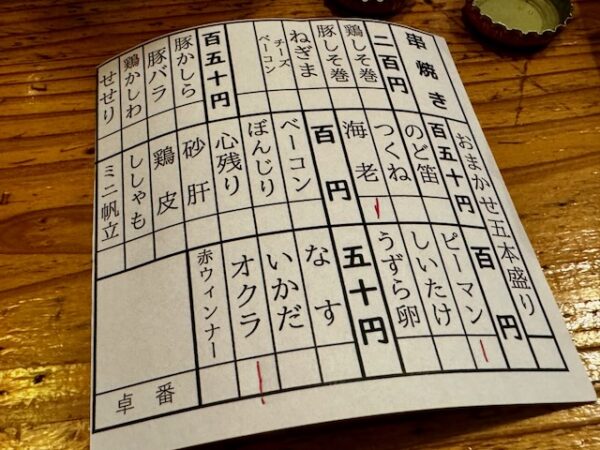 串焼き
おまかせ五本盛り
二百円
鶏しそ巻
豚しそ巻
ねぎま
チーズ
ベーコン
百五十円
豚かしら
豚バラ
鶏かしわ
せせり
百五十円
のど笛
つくね
海老
百円
ベーコン
ぼんじり
心残り
砂肝
鶏皮
ししゃも
ミニ帆立
百円
ピーマン
しいたけ
うずら卵
五十円
なす
いかだ
オクラ
赤ウィンナー
卓番